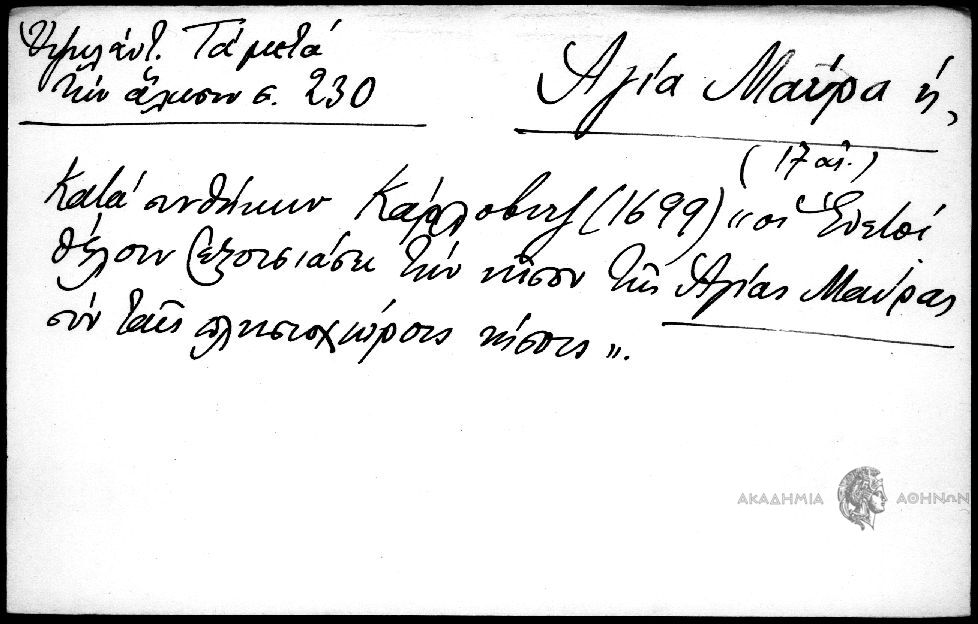 Ὑψηλάντ. Τά μετά
τήν ἅλωσιν σ. 230
Ἁγία Μαύρα ἡ,
(17 αἰ.)
Κατά συνθήκην Κάρλοβιτζ (1699) «οἱ Ἐνετοί
θέλουν ἐξουσιάσει τήν νῆσον τῆς Ἁγίας Μαύρας
σύν ταῖς πλησιοχώροις νήσοις».
ΑΚΑΔΗΜΙΑ ΑΘΗΝΩΝ